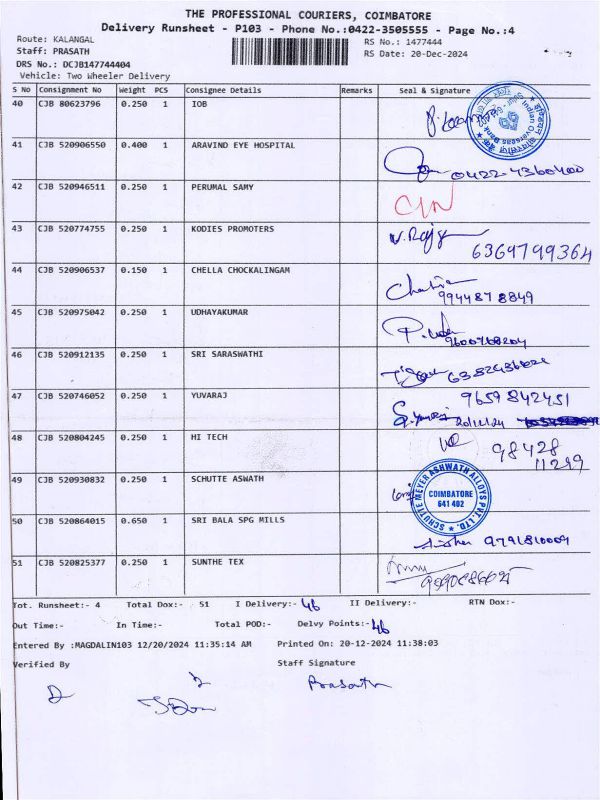 THE PROFESSIONAL COURIERS, COIMBATORE
Delivery Runsheet - P103 - Phone No.:0422-3505555 - Page No.:4
Route: KALANGAL RS No.: 1477444
Staff: PRASATH RS Date: 20-Dec-2024
DRS No.: DCJB147744404
Vehicle: Two Wheeler Delivery
S No Consignment No Weight PCS Consignee Details Remarks Seal & Signature
40 CJB 80623796 0.250 1 IOB
Indian Overseas Bank
41 CJB 520906550 0.400 1 ARAVIND EYE HOSPITAL
0422-4360400
42 CJB 520946511 0.250 1 PERUMAL SAMY
43 CJB 520774755 0.250 1 KODIES PROMOTERS
6369799364
44 CJB 520906537 0.150 1 CHELLA CHOCKALINGAM
9944878849
45 CJB 520975042 0.250 1 UDHAYAKUMAR
46 CJB 520912135 0.250 1 SRI SARASWATHI
47 CJB 520746052 0.250 1 YUVARAJ
9659842451
20/12/24
48 CJB 520804245 0.250 1 HI TECH
98428
11299
49 CJB 520930832 0.250 1 SCHUTTE ASWATH
SCHUTTE MEYER ASHWATH ALLOYS PVT. LTD.
COIMBATORE
641 402
50 CJB 520864015 0.650 1 SRI BALA SPG MILLS
9791810009
51 CJB 520825377 0.250 1 SUNTHE TEX
Tot. Runsheet:- 4 Total Dox:- 51 I Delivery:- 46 II Delivery:- RTN Dox:-
Out Time:- In Time:- Total POD:- Delvy Points:- 46
Entered By :MAGDALIN103 12/20/2024 11:35:14 AM Printed On: 20-12-2024 11:38:03
Verified By Staff Signature
Prasath